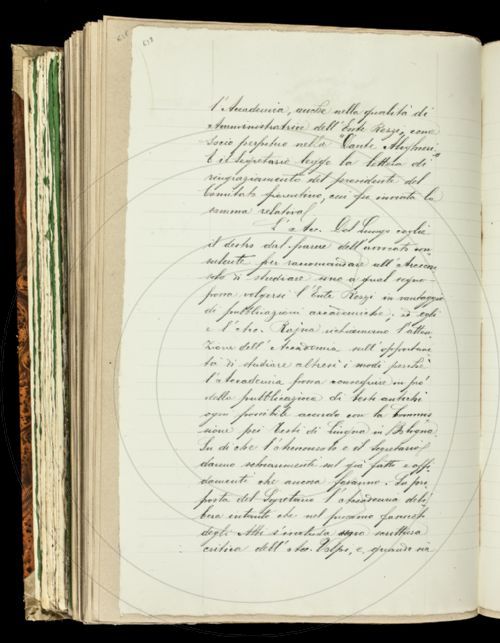 l'Accademia, anche nella qualità di
Amministratrice dell'Ente Rezzi, come
socio perpetuo nella "Dante Alighieri"
E il Segretario legge la lettera di
ringraziamento del presidente del
Comitato fiorentino, cui fu inviata la
somma relativa.
L'Acc. Del Lungo coglie
il destro dal parere dell'avvocato con
sulente per raccomandare all'Arcicon
solo di studiare sino a qual segno
possa volgersi l'Ente Rezzi in vantaggio
di pubblicazioni accademiche; ed egli
e l'Acc. Rajna richiamano l'atten
zione dell'Accademia sull'opportuni
tà di studiare altresì i modi perché
l'Accademia possa conseguire in pro'
della pubblicazione di testi antichi
ogni possibile accordo con la Commis
sione pei Testi di Lingua in Bologna.
Su di che l'Arciconsolo e il Segretario
danno schiarimenti sul già fatto e affi
damenti che ancora faranno. Su pro
posta del Segretario l'Accademia deli
bera intanto che nel prossimo fascicolo
degli Atti s'includa una scrittura
critica dell'Acc. Volpi, e, quando sia